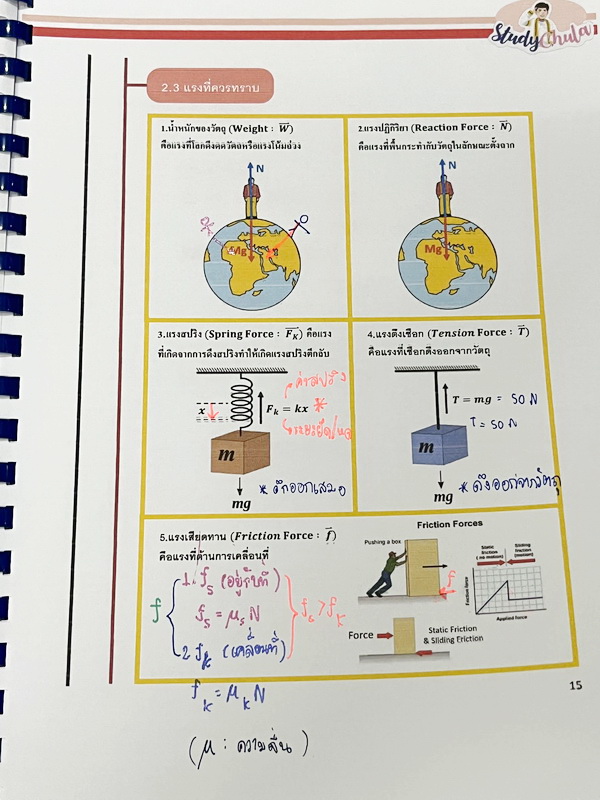 StudyChula
2.3 แรงที่ควรทราบ
1.น้ำหนักของวัตถุ (Weight : W)
คือแรงที่โลกดึงดูดวัตถุหรือแรงโน้มถ่วง
N
Mg
2.แรงปฏิกิริยา (Reaction Force : N)
คือแรงที่พื้นกระทำกับวัตถุในลักษณะตั้งฉาก
N
Mg
3.แรงสปริง (Spring Force : F_K) คือแรง
ที่เกิดจากการดึงสปริงทำให้เกิดแรงสปริงดึกลับ
ค่าสปริง
x
F_k = kx *
ระยะยืด/หด
m
mg
* ดึกออกเสมอ
4.แรงดึงเชือก (Tension Force : T)
คือแรงที่เชือกดึงออกจากวัตถุ
T = mg = 50 N
T = 50 N
m
mg
* ดึงออกจากวัตถุ
5.แรงเสียดทาน (Friction Force : f)
คือแรงที่ต้านการเคลื่อนที่
f
1. f_s (อยู่กับที่)
f_s = μ_s N
2. f_k (เคลื่อนที่)
f_s > f_k
f_k = μ_k N
(μ : ความลื่น)
Friction Forces
Pushing a box
f
Static friction (no motion)
Sliding friction (motion)
Friction force
Applied force
Force
Static Friction
& Sliding Friction
15